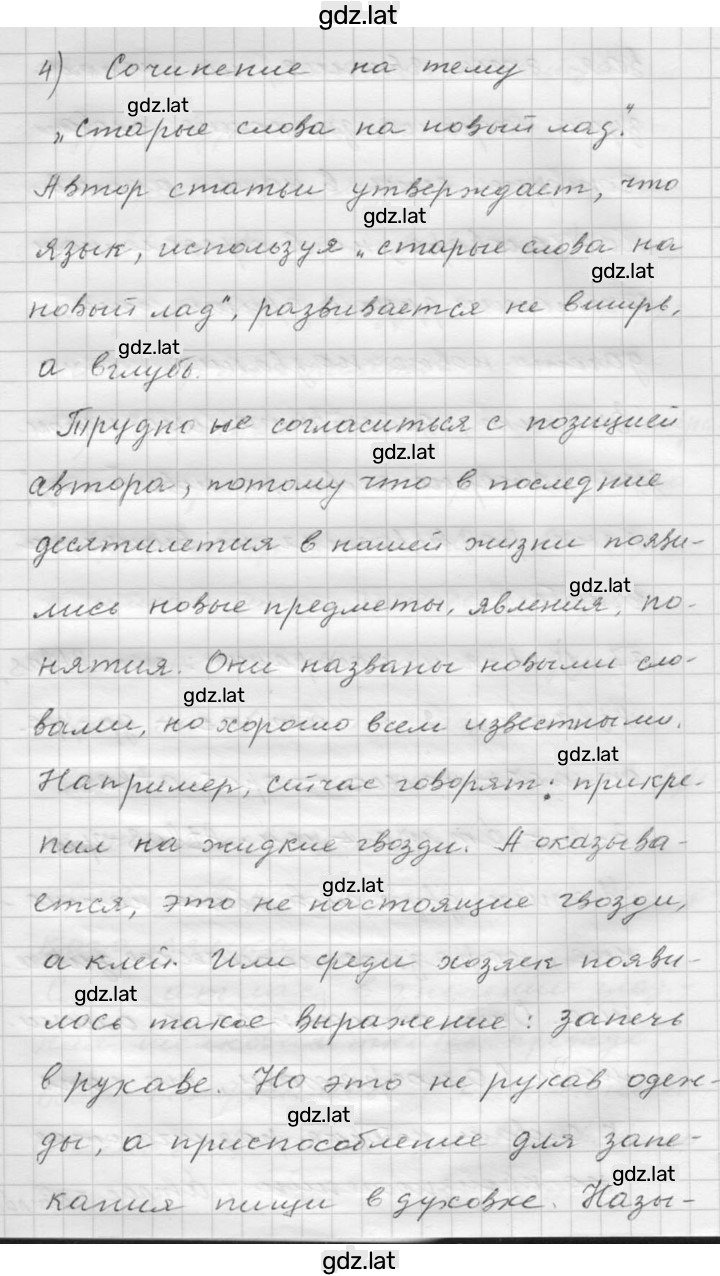 gdz.lat
4) Сочинение на тему
gdz.lat
„Старые слова на новый лад".
Автор статьи утверждает, что
gdz.lat
язык, используя „старые слова на
gdz.lat
новый лад", развивается не вширь,
gdz.lat
а вглубь.
Трудно не согласиться с позицией
gdz.lat
автора, потому что в последние
десятилетия в нашей жизни появи-
gdz.lat
лись новые предметы, явления, по-
нятия. Они названы новыми сло-
gdz.lat
вами, но хорошо всем известными.
gdz.lat
Например, сейчас говорят: прикре-
пил на жидкие гвозди. А оказыва-
gdz.lat
ется, это не настоящие гвозди,
а клей. Или среди хозяек появи-
gdz.lat
лось такое выражение: запечь
в рукаве. Но это не рукав одеж-
gdz.lat
ды, а приспособление для запе-
gdz.lat
кания пищи в духовке. Назы-
gdz.lat